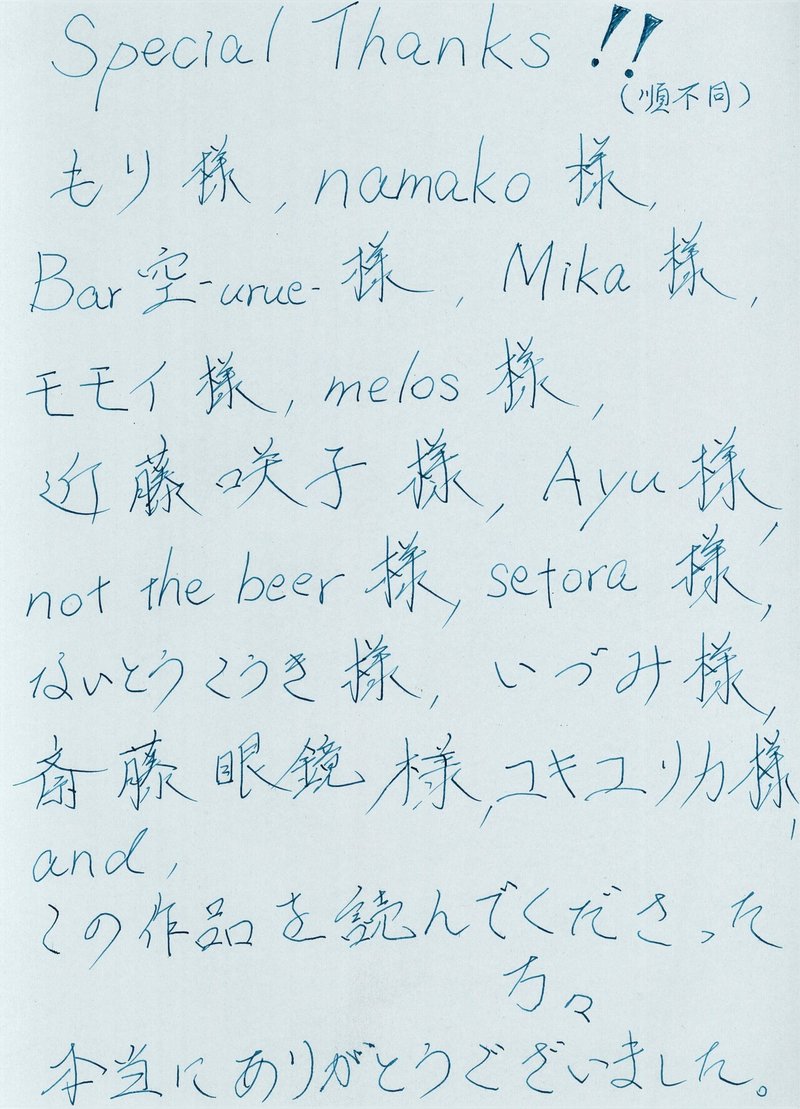 Special Thanks !!
(順不同)
もり 様, namako 様,
Bar 空-urue- 様, Mika 様,
モモイ 様, melos 様,
近藤 咲子 様, Ayu 様,
not the beer 様, setora 様,
ないとうこうき 様, いづみ 様,
斎藤 眼鏡 様, ユキユリカ 様,
and,
この作品を読んでくださった
方々
本当にありがとうございました。